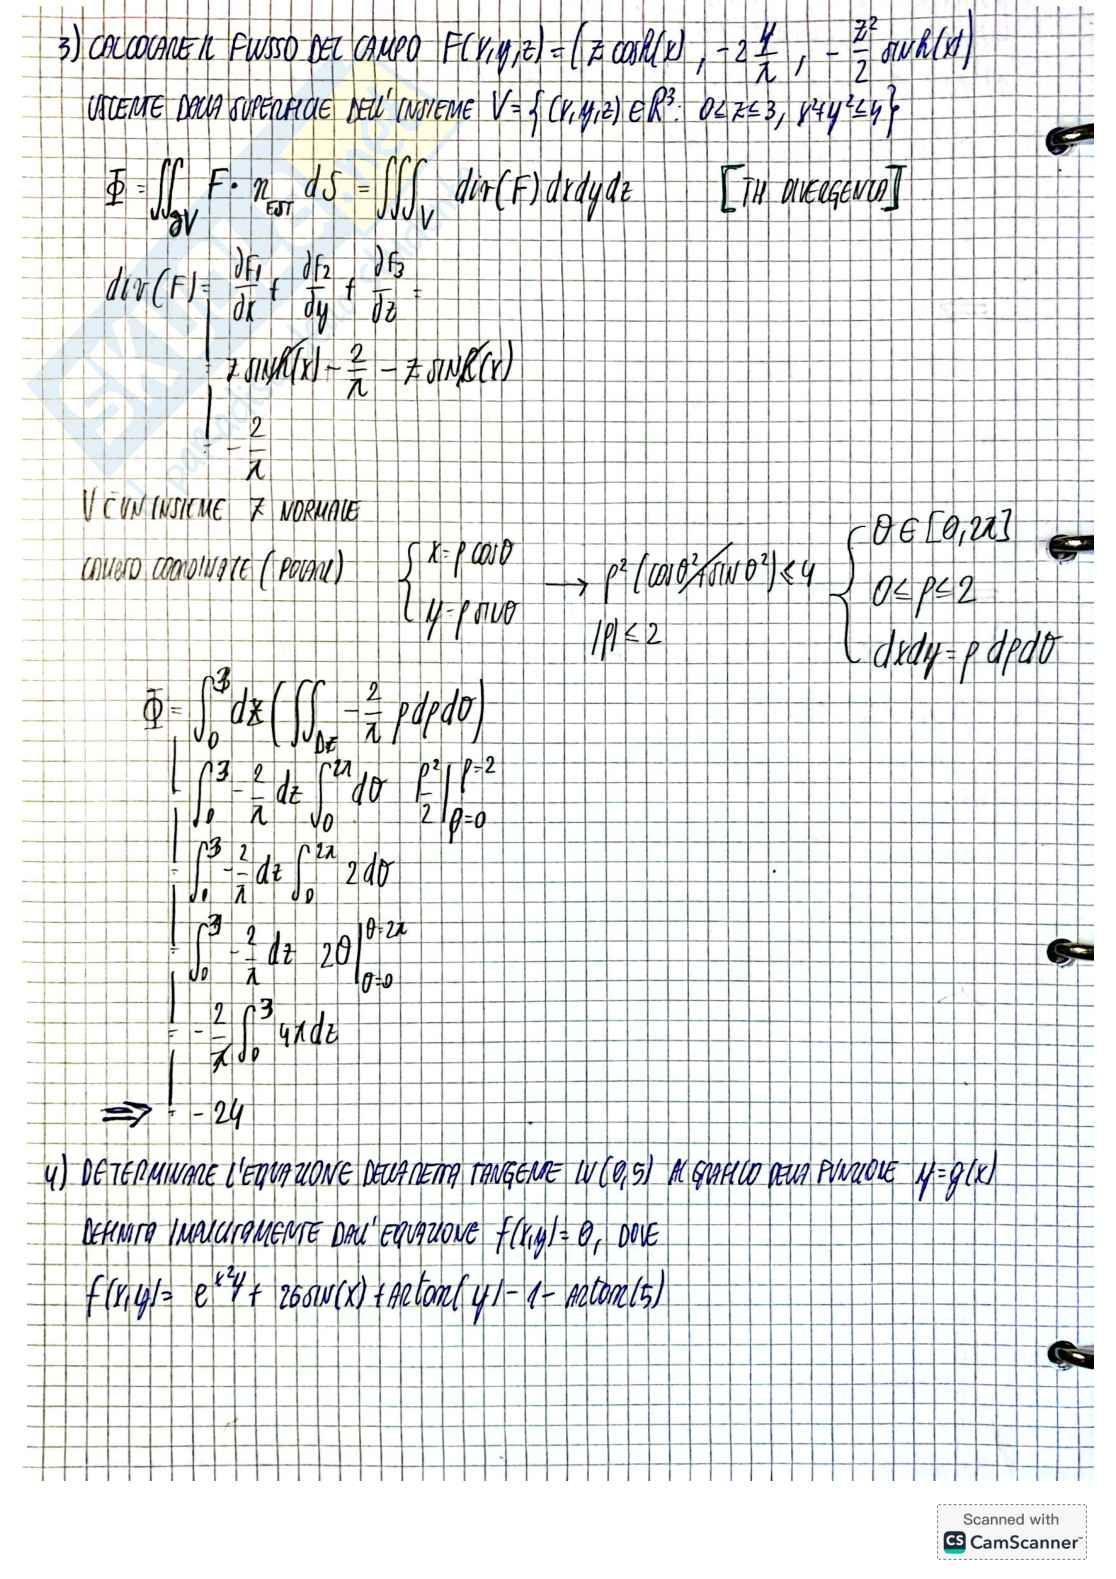 3) CALCOLARE IL FLUSSO DEL CAMPO F(x,y,z) = (z cosh(x), -2 y/π, - z²/2 sinh(x))
USCENTE DALLA SUPERFICIE DELL'INSIEME V = {(x,y,z) ∈ R³: 0≤z≤3, x²+y²≤4}
Φ = ∬∂V F · n EST dS = ∭V div(F) dxdydz [TH DIVERGENZA]
div(F) = ∂F1/∂x + ∂F2/∂y + ∂F3/∂z =
= z sinh(x) - 2/π - z sinh(x)
= - 2/π
V È UN INSIEME Z NORMALE
CAMBIO COORDINATE (POLARI) { x = ρ cosθ y = ρ sinθ → ρ² (cosθ² + sinθ²) ≤ 4 |ρ| ≤ 2 { θ ∈ [0,2π] 0 ≤ ρ ≤ 2 dxdy = ρ dρdθ
Φ = ∫₀³ dz (∬Dz - 2/π ρ dρdθ)
= ∫₀³ - 2/π dz ∫₀^2π dθ ρ²/2 | ρ=2 ρ=0
= ∫₀³ - 2/π dz ∫₀^2π 2 dθ
= ∫₀³ - 2/π dz 2θ | θ=2π θ=0
= - 2/π ∫₀³ 4π dz
⇒ = - 24
4) DETERMINARE L'EQUAZIONE DELLA RETTA TANGENTE IN (0,5) AL GRAFICO DELLA FUNZIONE y = g(x)
DEFINITA IMPLICITAMENTE DALL'EQUAZIONE f(x,y) = 0, DOVE
f(x,y) = e^(x²y) + 26 sin(x) + Arctan(y) - 1 - Arctan(5)
Scanned with
CS CamScanner